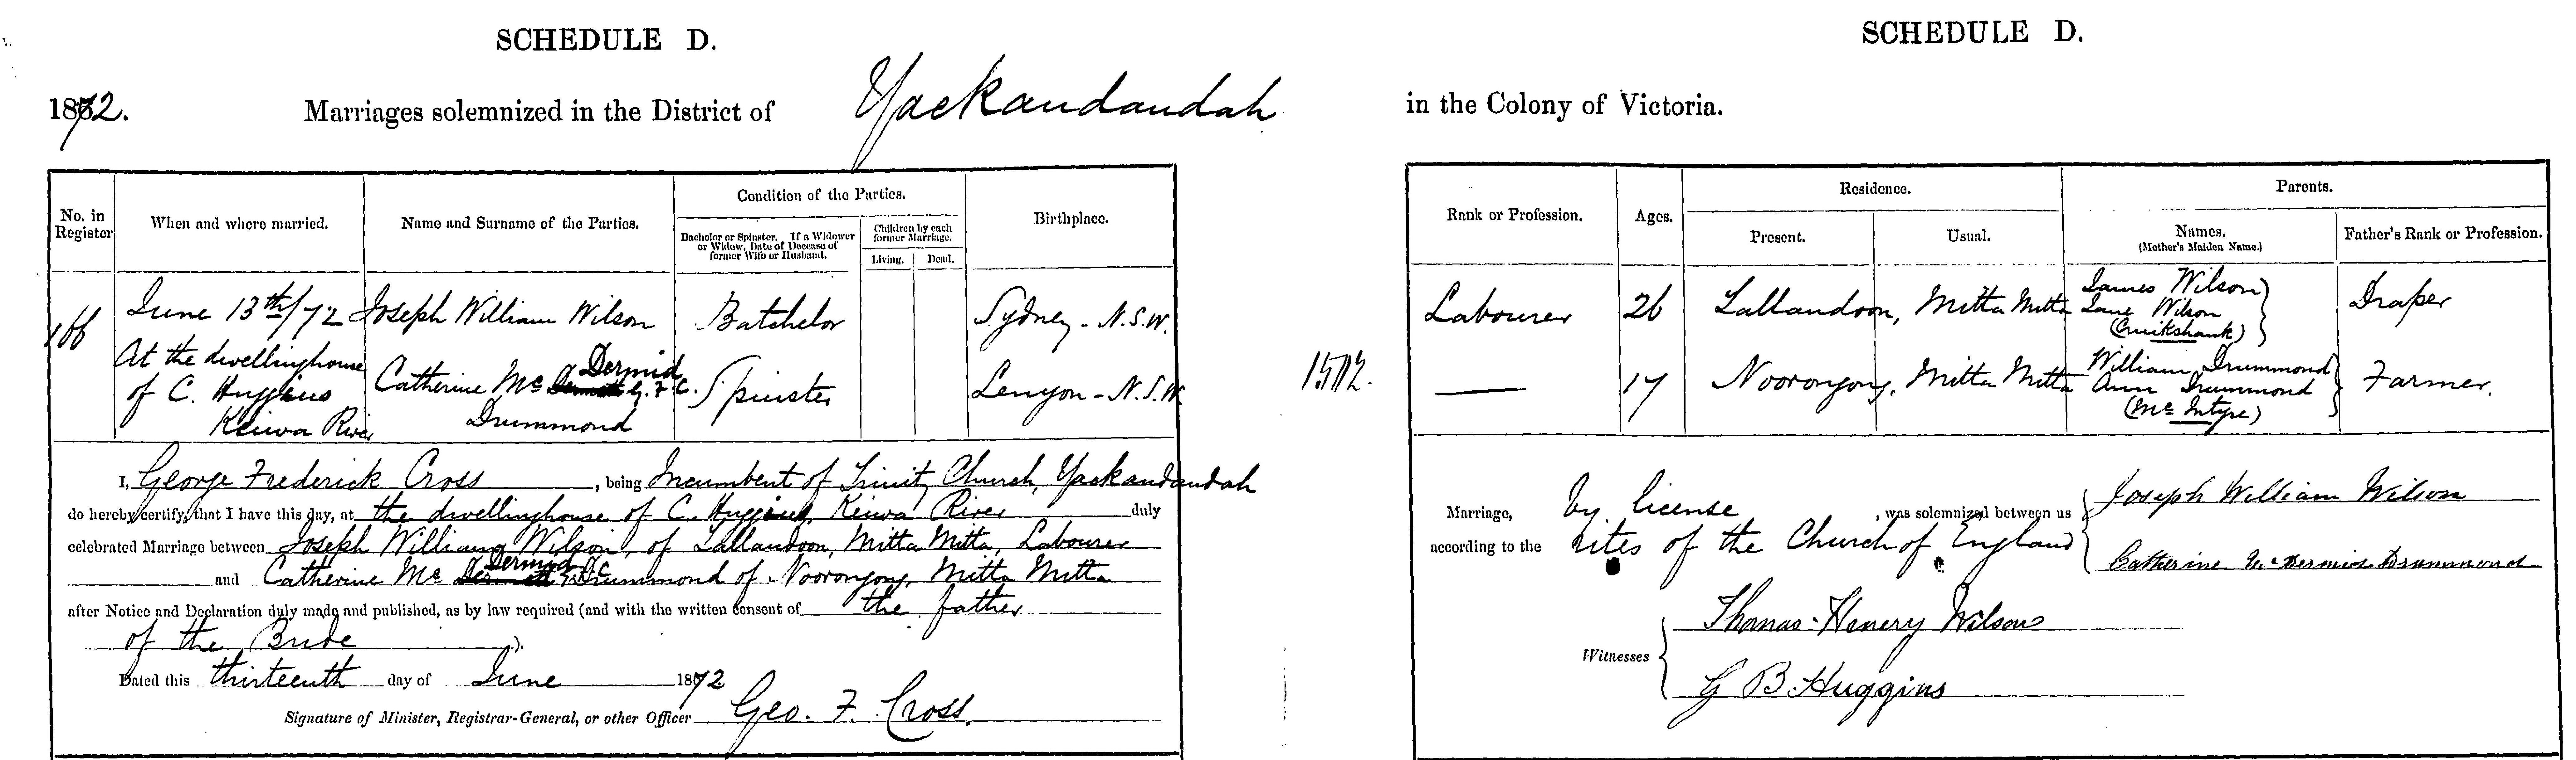 SCHEDULE D.
1872. Marriages solemnized in the District of Yackandandah
No. in Register
When and where married.
Name and Surname of the Parties.
Condition of the Parties.
Bachelor or Spinster. If a Widower or Widow, Date of Decease of former Wife or Husband.
Children by each former Marriage.
Living. Dead.
Birthplace.
166
June 13th/72 Joseph William Wilson Batchelor Sydney - N.S.W.
At the dwellinghouse
of C. Huggins
Keiwa River
Dermid
Catherine Mc G. F. C. Spinster Lenyon - N.S.W.
Drummond
I, George Frederick Cross, being Incumbent of Trinity Church, Yackandandah
do hereby certify, that I have this day, at the dwellinghouse of C. Huggins, Keiwa River duly
celebrated Marriage between Joseph William Wilson, of Lallandoon, Mitta Mitta, Labourer
Dermid
and Catherine Mc Drummond of Noorongong, Mitta Mitta
after Notice and Declaration duly made and published, as by law required (and with the written consent of the father
of the Bride ).
Dated this thirteenth day of June 1872
Signature of Minister, Registrar-General, or other Officer Geo. F. Cross.
SCHEDULE D.
in the Colony of Victoria.
Rank or Profession.
Ages.
Residence.
Present. Usual.
Parents.
Names.
(Mother's Maiden Name.)
Father's Rank or Profession.
Labourer 26 Lallandoon, Mitta Mitta James Wilson
Jane Wilson
(Cruikshank) Draper
1512.
17 Noorongong, Mitta Mitta William Drummond
Ann Drummond
(Mc Intyre) Farmer.
Marriage, by license, was solemnized between us Joseph William Wilson
according to the rites of the Church of England Catherine McDermid Drummond
Witnesses
Thomas Henery Wilson
G B Huggins